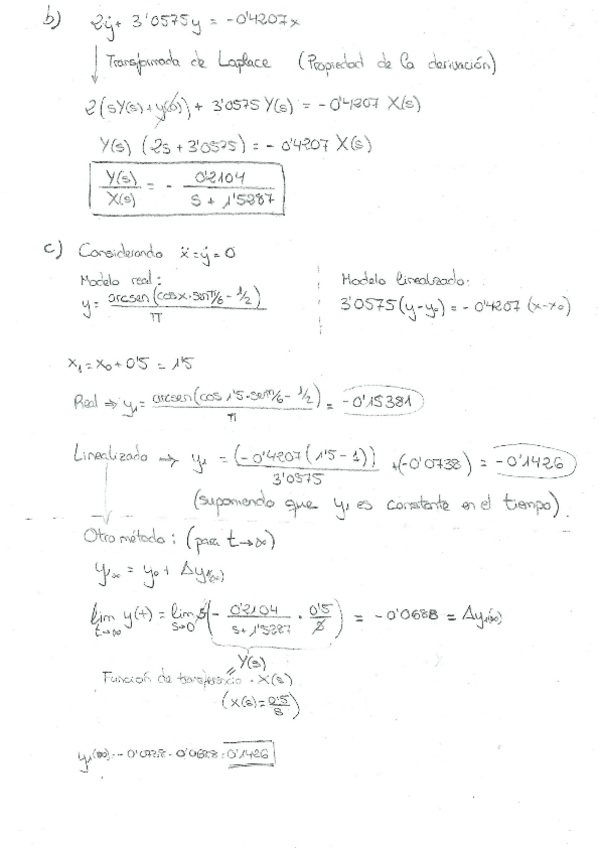 b) 2ẏ + 3'0575y = -0'4207x
Transformada de Laplace (Propiedad de la derivación)
2(sY(s)+y(0)) + 3'0575 Y(s) = -0'4207 X(s)
Y(s) (2s + 3'0575) = -0'4207 X(s)
Y(s)/X(s) = - 0'2104/(s + 1'5287)
c) Considerando ẍ=ẏ=0
Modelo real:
y = arcsen(cosx·senπ/6 - 1/2)/π
Modelo linealizado:
3'0575(y-y₀) = -0'4207 (x-x₀)
x₁ = x₀ + 0'5 = 1'5
Real ⇒ y₁ = arcsen(cos 1'5·senπ/6 - 1/2)/π = -0'15381
Linealizado → y₁ = (-0'4207(1'5-1))/3'0575 + (-0'0738) = -0'1426
(suponiendo que y₁ es constante en el tiempo).
Otro método: (para t→∞)
y₁∞ = y₀ + Δy₁(∞)
lim t→∞ y(t) = lim s→0 s(- 0'2104/(s+1'5287) · 0'5/s) = -0'0688 = Δy₁(∞)
Y(s)
=
Función de transferencia · X(s)
(X(s)=0'5/s)
y₁(∞) = -0'0738 - 0'0688 = 0'1426